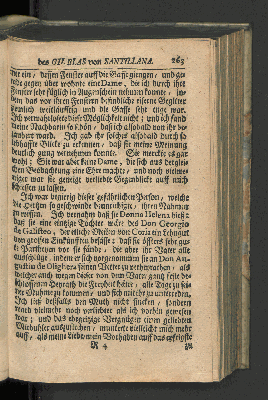 des GIL BLAS von SANTILLANA. 263
mer ein, dessen Fenster auff die Gasse giengen, und ge-
rade gegen über wohnte eine Dame, die ich durch ihre
Fenster sehr füglich in Augenschein nehmen konnte, in-
dem das vor ihren Fenstern befindliche eiserne Gegitter
ziemlich weitläufftig und die Gasse sehr enge war.
Ich verwahrlosete diese Möglichkeit nicht; und ich fand
meine Nachbarin so schön, daß ich alsobald von ihr be-
zaubert ward. Ich gab ihr solches alsobald durch so
lebhaffte Blicke zu erkennen, daß sie meine Meinung
deutlich gnug vernehmen konnte. Sie merckte es gar
wohl; Sie war aber keine Dame, die sich aus dergleich-
chen Beobachtung eine Ehre machte, und noch viel we-
niger war sie geneigt verliebte Gegenblicke auff mich
schiessen zu lassen.
Ich war begierig dieser gefährlichen Person, welche
die Hertzen so geschwinde beunruhigte, ihren Nahmen
zu wissen. Ich vernahm daß sie Donna Helena hieß:
Daß sie eine eintzige Tochter wäre des Don Georgio
de Galisteo, der etliche Meilen von Coria ein Lehngut
von grossen Einkünfften besasse; daß sie öffters sehr gu-
te Parthien vor sie fände, die aber ihr Vater alle
ausschlüge, indem er sich vorgenommen sie an Don Au-
gustin de Olighera seinen Vettern zu verheyrathen, als
welcher auch wegen dieser von dem Vater gantz feste be-
schlossenen Heyrath die Freyheit hätte, alle Tage zu sei-
ner Muhme zu kommen, und sich mit ihr zu unterreden.
Ich ließ deßfalls den Muth nicht sincken, sondern
ward vielmehr noch verliebter als ich vorhin gewesen
war; und das ehrgeitzige Vergnügen einen geliebten
Mitbuhler auszustechen, munterte vielleicht mich mehr
auff, als meine Liebe mein Vorhaben auff das eyfrigste
R 4 zu